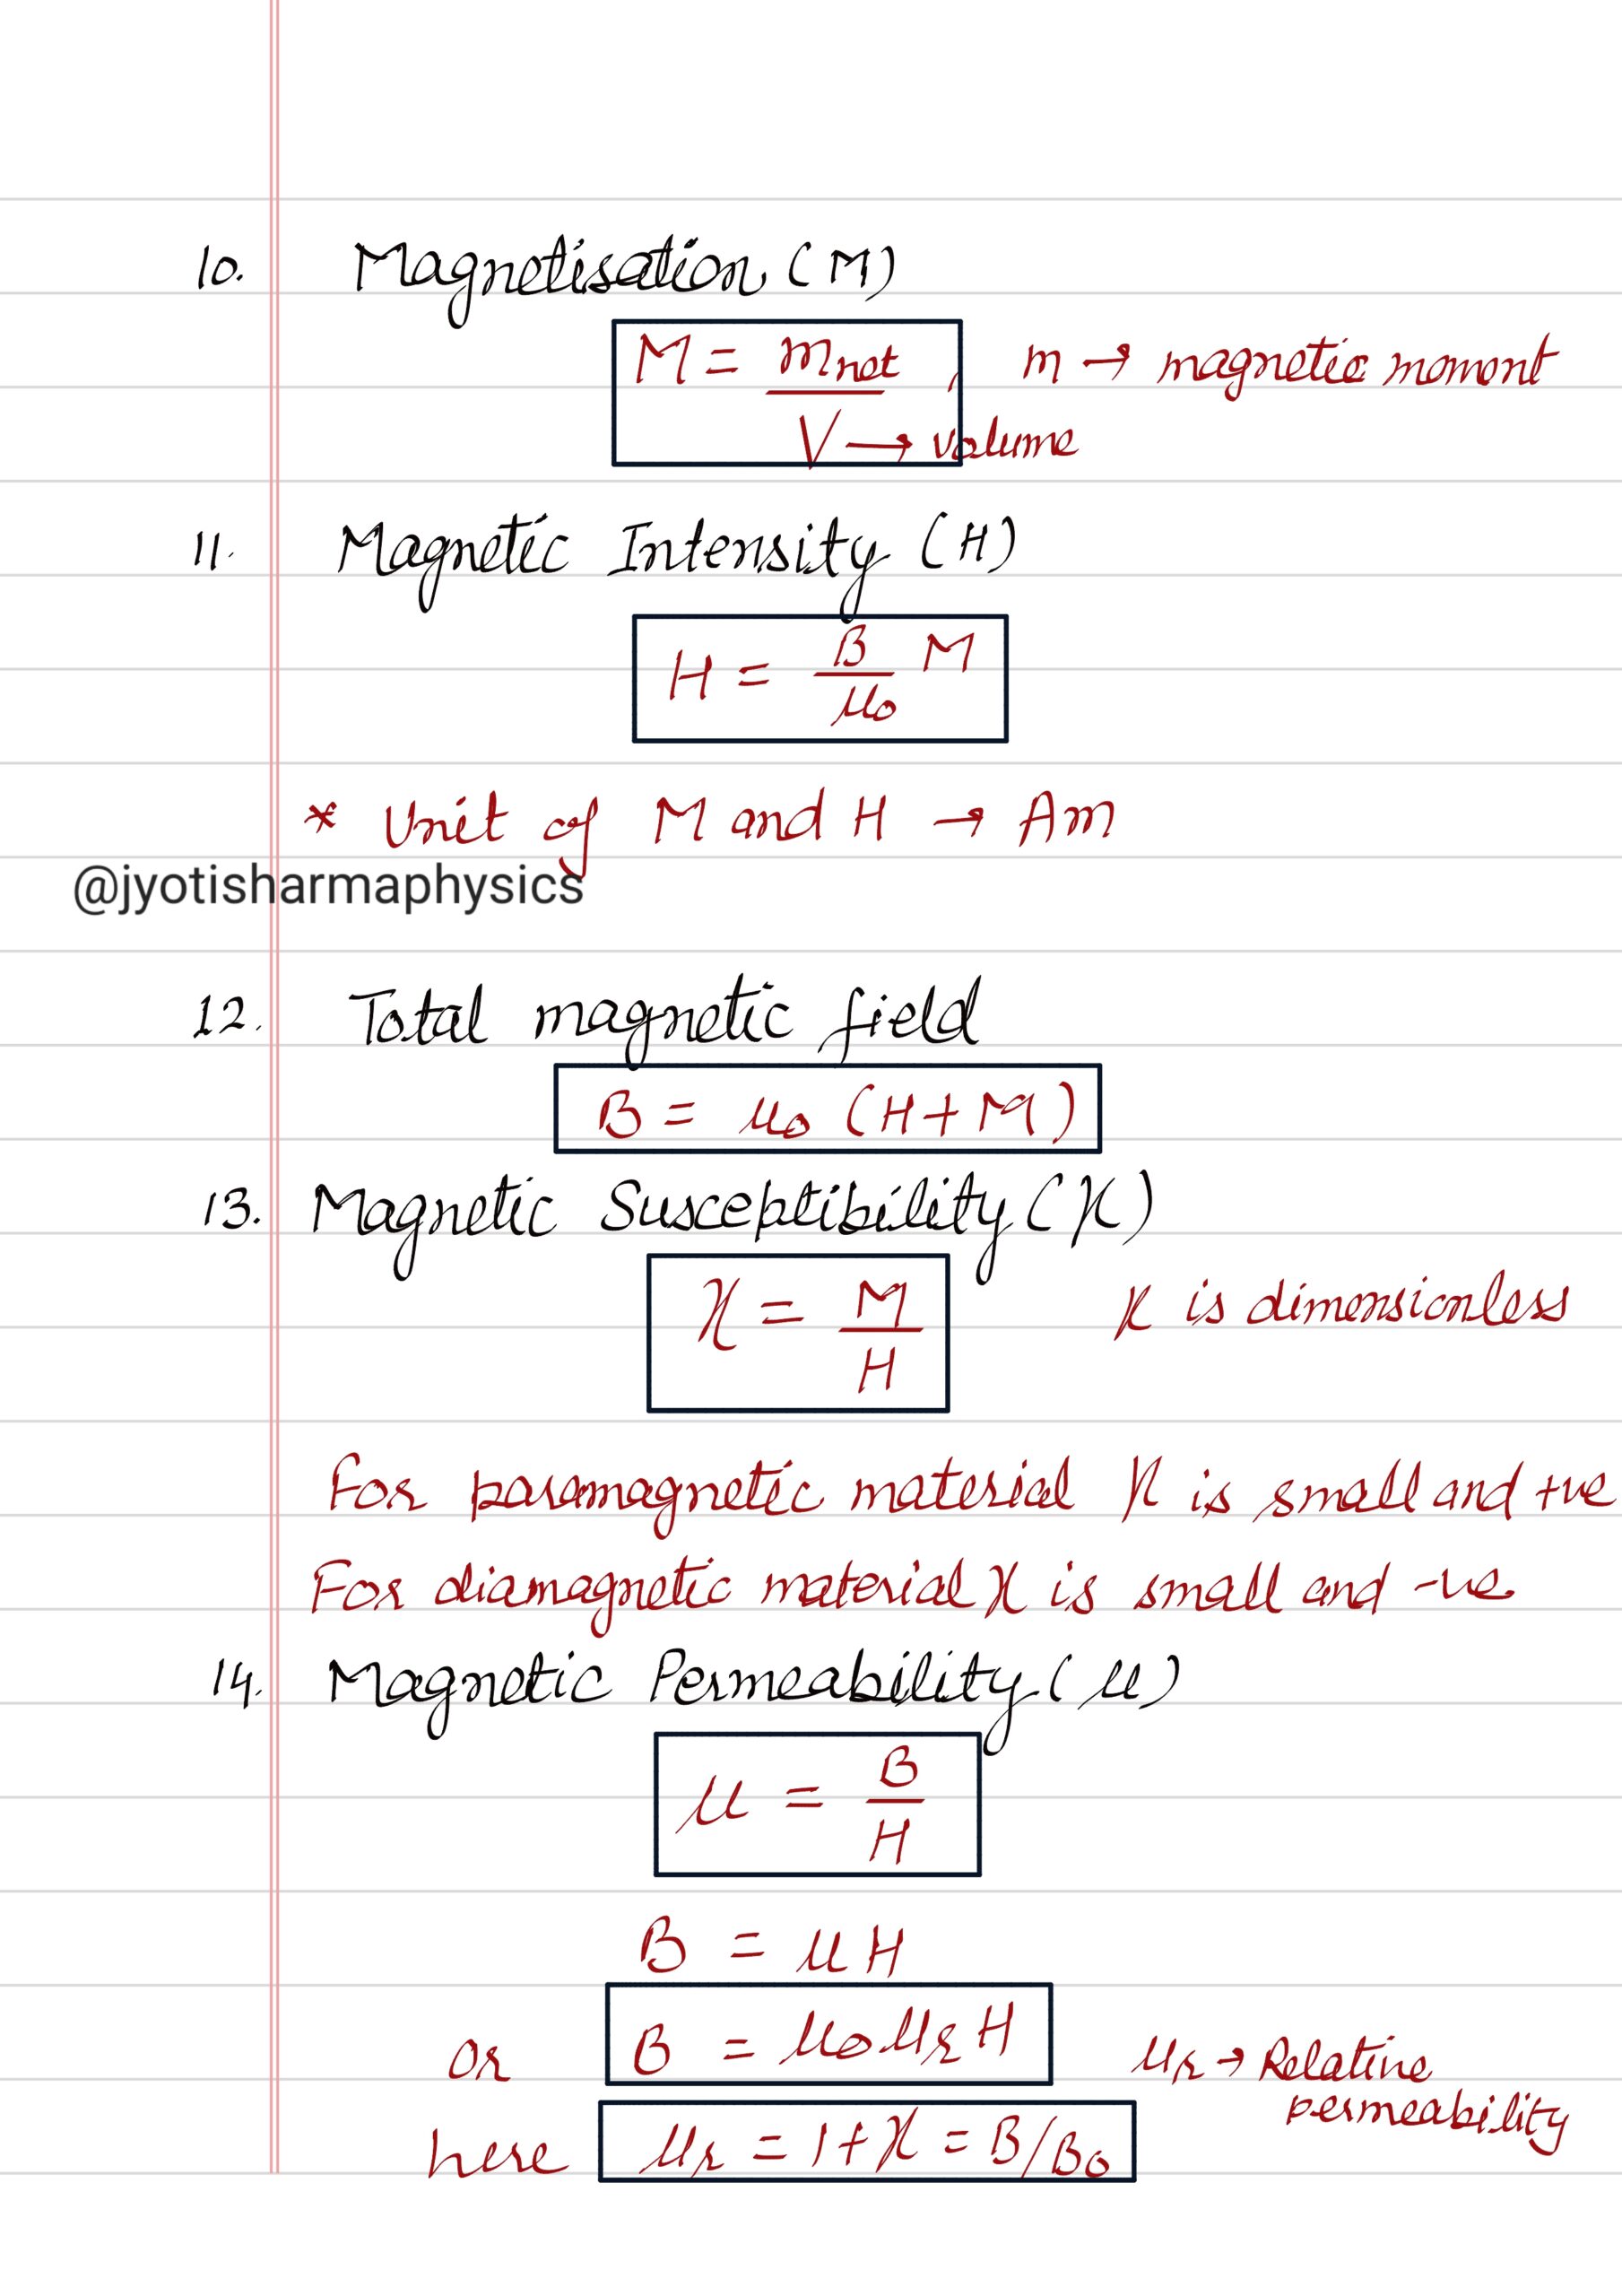 10. Magnetisation (M)
M = mnet / V → volume , m → magnetic moment
11. Magnetic Intensity (H)
H = B/μ₀ M
* Unit of M and H → Am
@jyotisharmaphysics
12. Total magnetic field
B = μ₀ (H+M)
13. Magnetic Susceptibility (χ)
χ = M/H χ is dimensionless
For paramagnetic material χ is small and +ve
For diamagnetic material χ is small and -ve
14. Magnetic Permeability (μ)
μ = B/H
B = μH
or B = μ₀μᵣH μᵣ → Relative permeability
here μᵣ = 1+χ = B/B₀